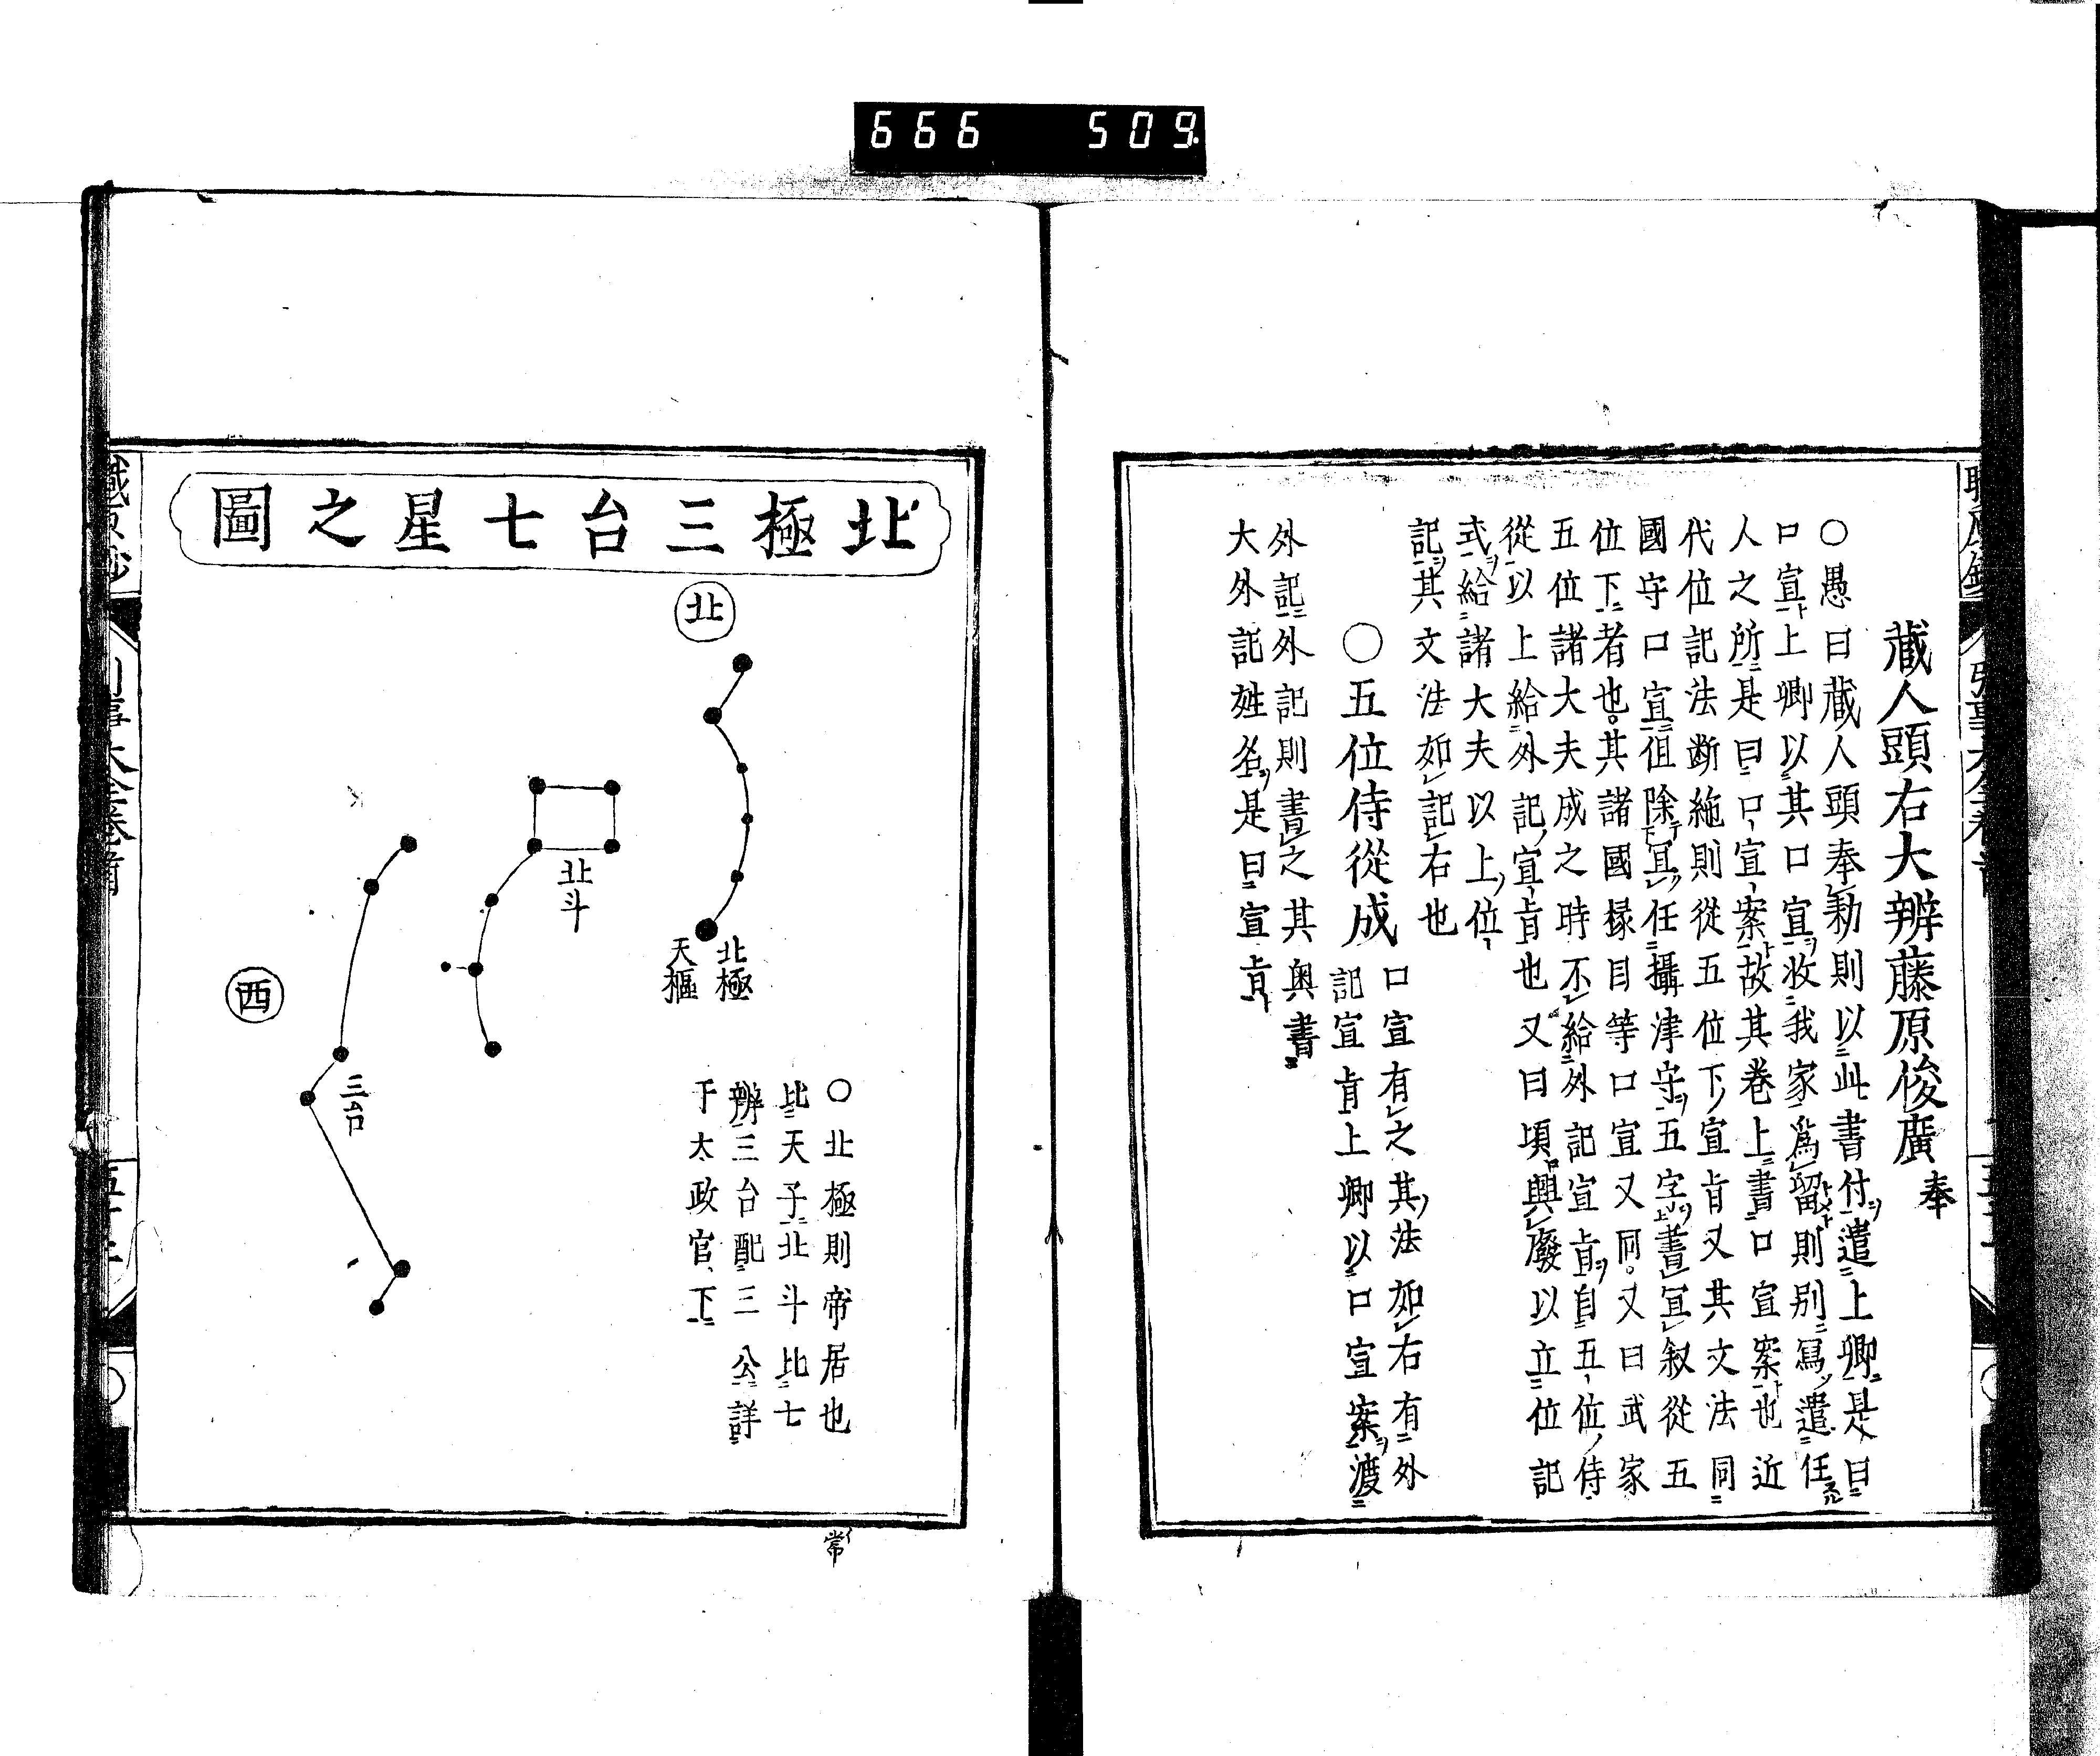 666 509
藏人頭右大辨藤原俊廣奉
○愚曰藏人頭奉勅則以此書付遣上卿是曰
口宣上卿以其口宣收我家爲留則別寫遣任
人之所是曰口宣案故其卷上書口宣案也近
代位記法断絁則從五位下宣旨又其文法同
國守口宣但除冝任攝津守五字書冝叙從五
位下者也其諸國椽目等口宣又同又曰武家
五位諸大夫成之時不給外記宣旨自五位侍
從以上給外記宣旨也又曰頃興廢以立位記
式給諸大夫以上位
記其文法如記右也
○五位侍從成
口宣有之其法如右有外
記宣旨上卿以口宣案渡
外記外記則書之其奥書
大外記姓名是曰宣旨
北極三台七星之圖
北
北極
天樞
北斗
三台
西
○北極則帝居也
比天子北斗比七
辨三台配三公詳
于太政官下
常